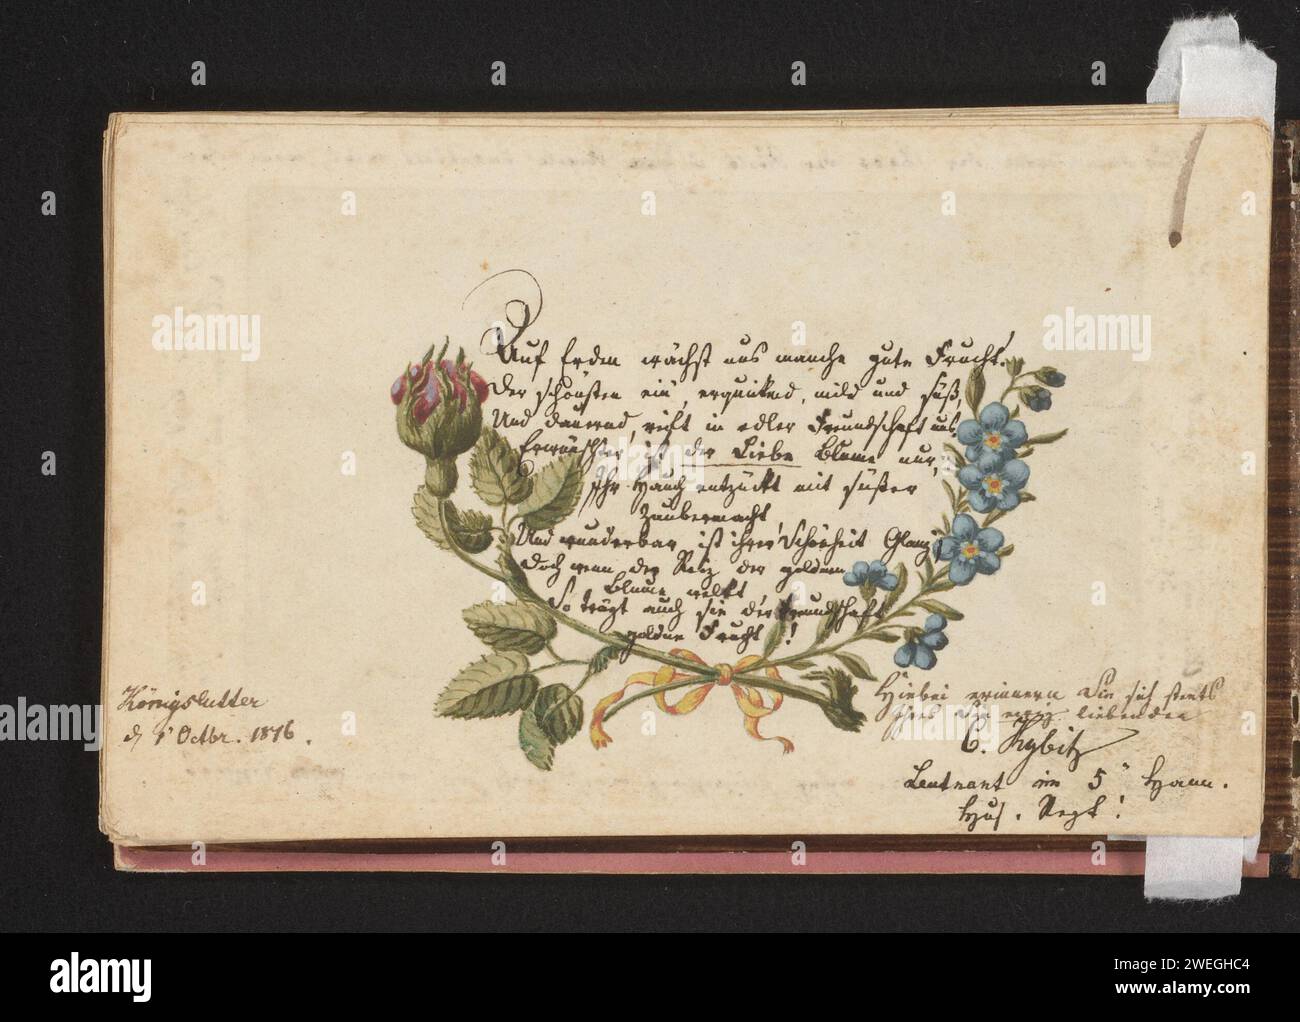 Auf Erden wächst uns manche gute Frucht!
Der schönsten ein, erquickend, mild und süß,
Und dauernd, reift in edler Freundschaft uns
Erwünschter ist der Liebe Blume nur,
Ihr Hauch entzückt mit süßer
Zaubermacht
Und wunderbar ist ihrer Schönheit Glanz;
Doch wenn der Reiz der goldnen
Blume welkt
So trägt auch sie der Freundschaft
goldne Frucht!
Königslutter
d. 1 Octbr. 1816.
Hiebei erinnern Sie sich stets
Ihres Sie liebenden
C. Kybitz
Leutnant im 5 Hann.
Hus. Regt!
alamy
Image ID: 2WEGHC4
www.alamy.com